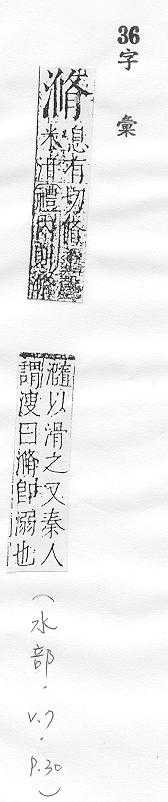 36
字彙
滫
息有切脩上聲
米泔禮內則滫
瀡以滑之又秦人
謂溲曰滫卽溺也
(水部.V.7.P.30)